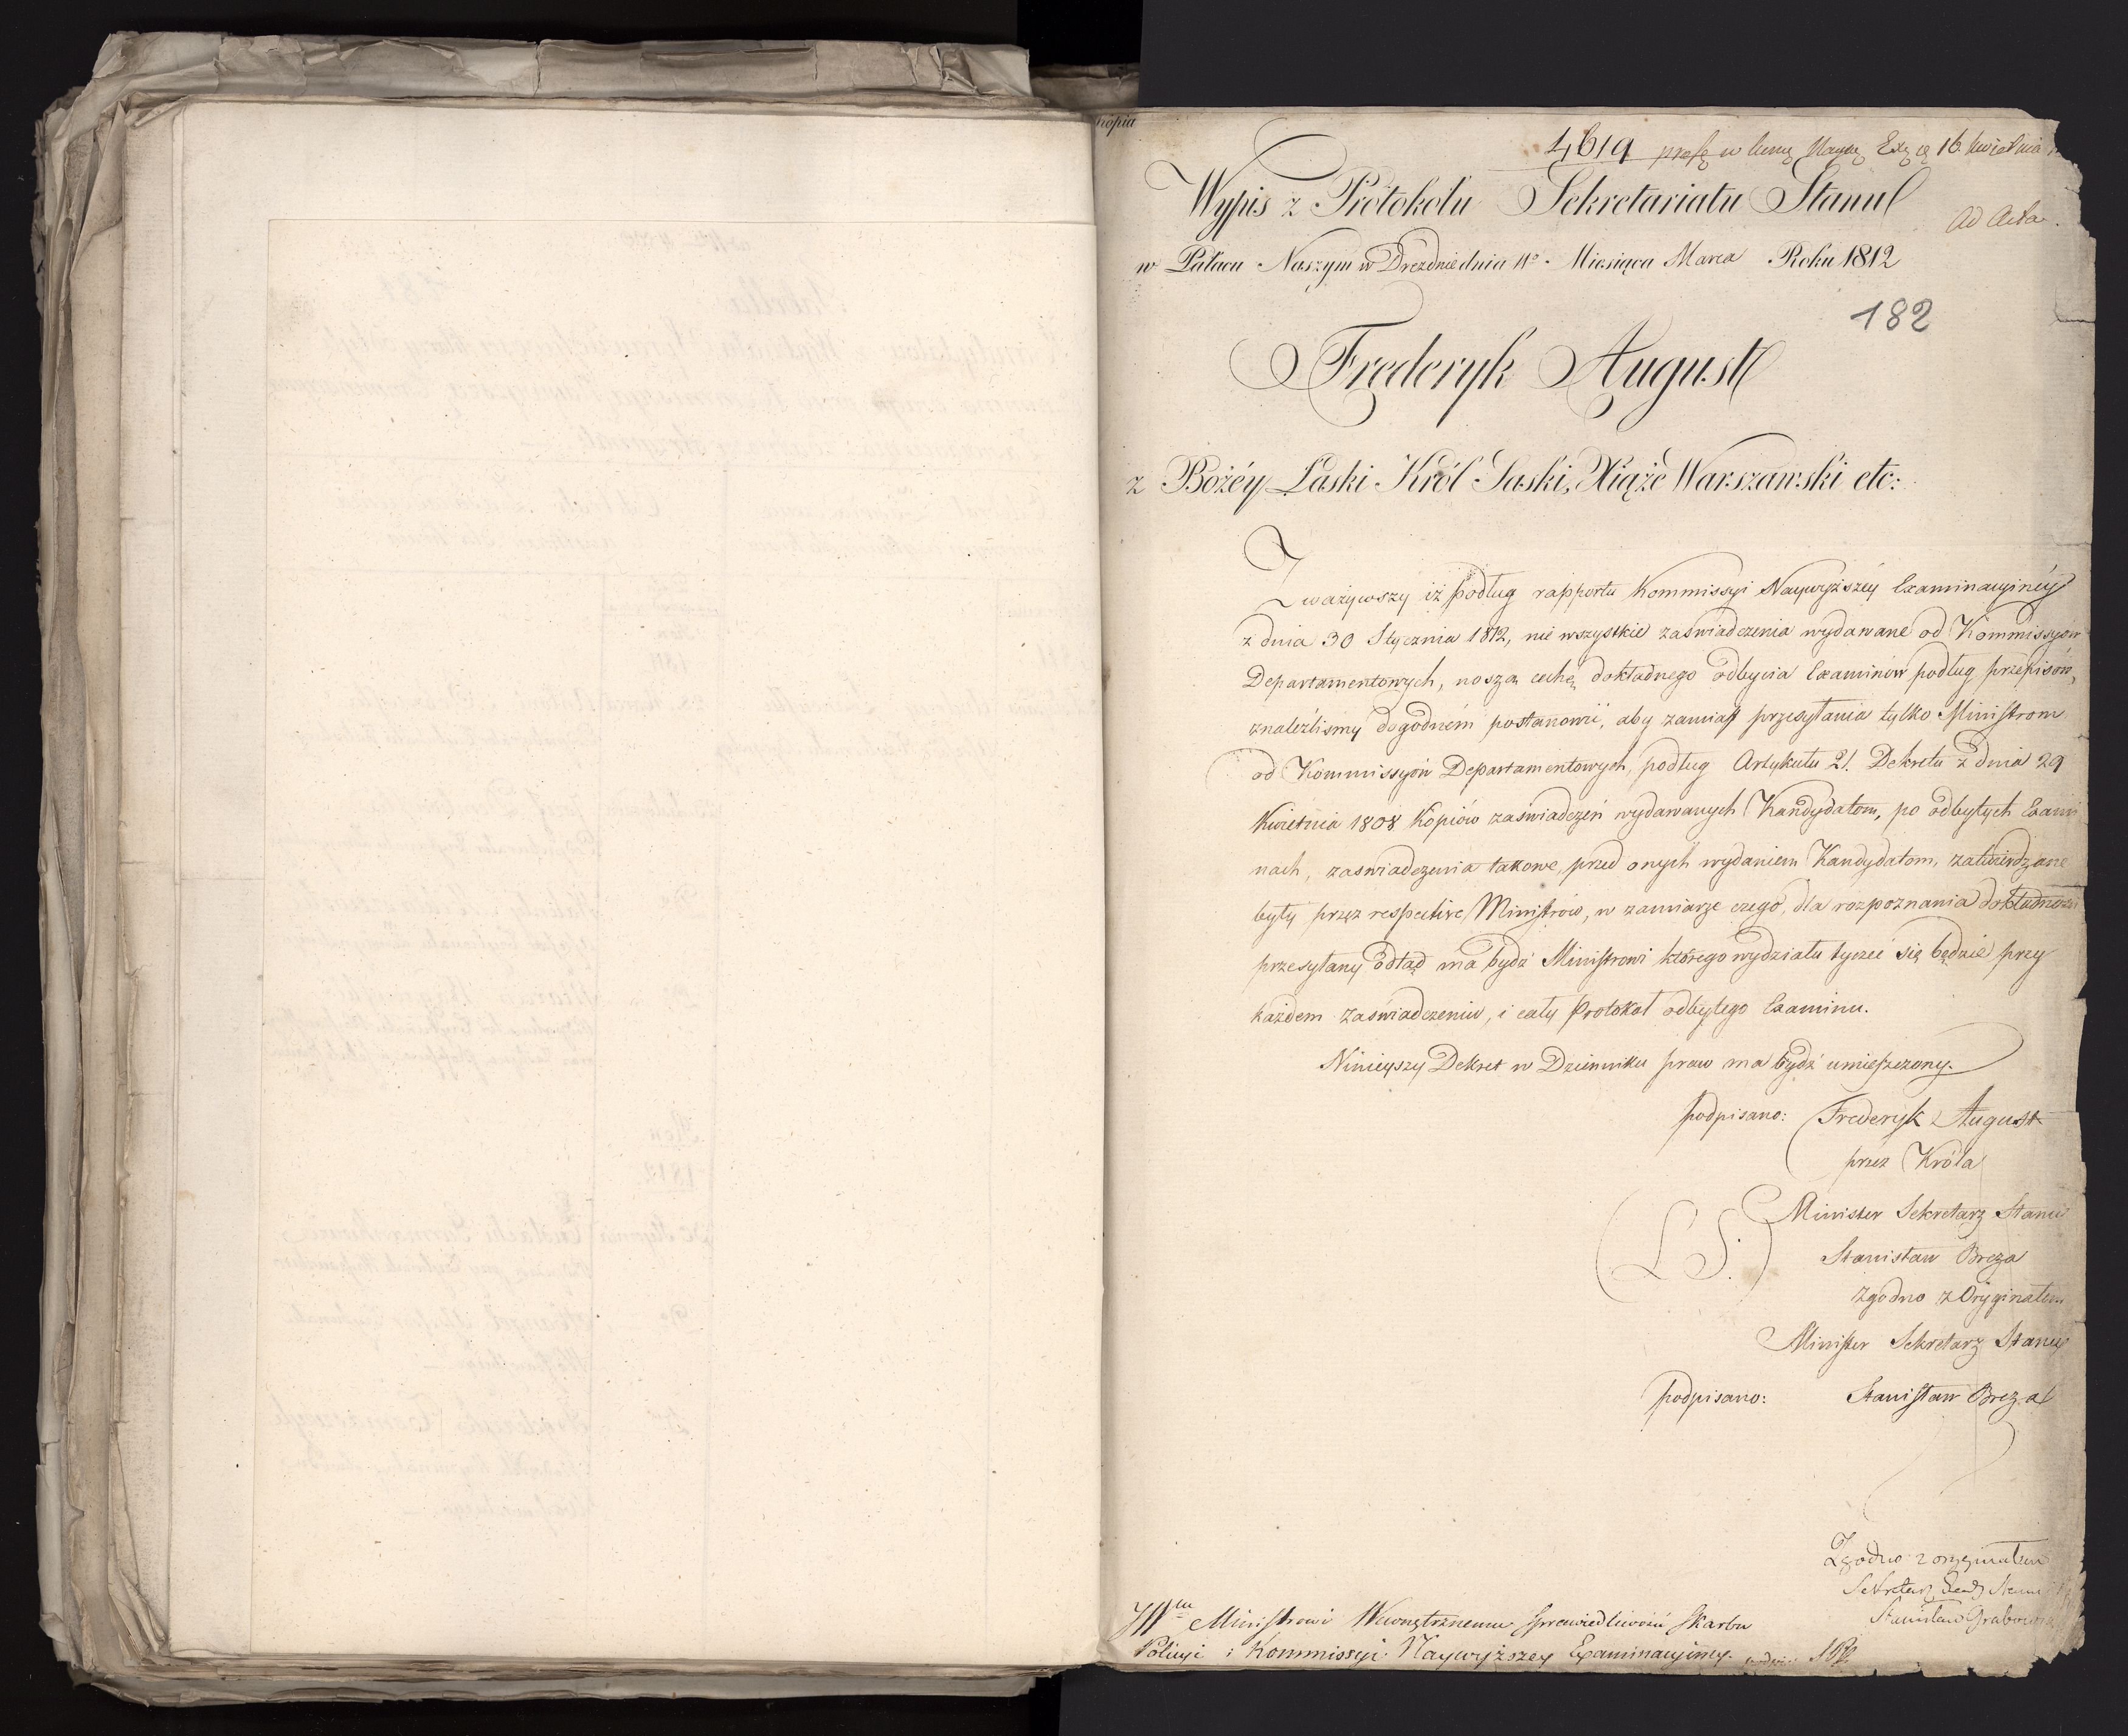 Kopia
4619 16 kwietnia
Wypis z Protokołu Sekretariatu Stanu
Ad Acta.
w Pałacu Naszym w Dreźnie dnia 11o. Miesiąca Marca Roku 1812
182
Frederyk August
z Bożéy Łaski Król Saski, Xiąże Warszawski etc:
Zważywszy iż podług rapportu Kommissyi Naywyższéy Examinacyinéy
z dnia 30 Stycznia 1812, nie wszystkie zaświadczenia wydawane od Kommissyów
Departamentowych, noszą cechę dokładnego odbycia Examinów podług przepisów,
znaleźlismy dogodném postanowić, aby zamiast przesyłania tylko Ministrom
od Kommissyów Departamentowych, podług Artykułu 21. Dekretu z dnia 29
Kwietnia 1808 Kopiów zaświadczeń wydawanych Kandydatom, po odbytych Exami
nach, zaswiadczenia takowe, przed onych wydaniem Kandydatom, zatwierdzane
były przez respective Ministrów, w zamiarze czego, dla rozpoznania dokładności
przesyłany odtąd ma bydź Ministrowi którego wydziału tyczeć się będzie przy
każdem zaświadczeniu, i cały Protokół odbytego Examinu.
Ninieyszy Dekret w Dzienniku praw ma bydź umieszczony.
podpisano: Frederyk August
przez Króla
Minister Sekretarz Stanu
(L S.)
Stanisław Breza
Zgodno z Oryginałem
Minister Sekretarz Stanu
podpisano: Stanisław Breza
Zgodno z oryginałem
Sekretarz Rady Stanu
Stanisław Grabowski
JWmu Ministrowi Wewnętrznemu Sprawiedliwości Skarbu
Policyi i Kommissyi Naywyższey Examinacyiney.